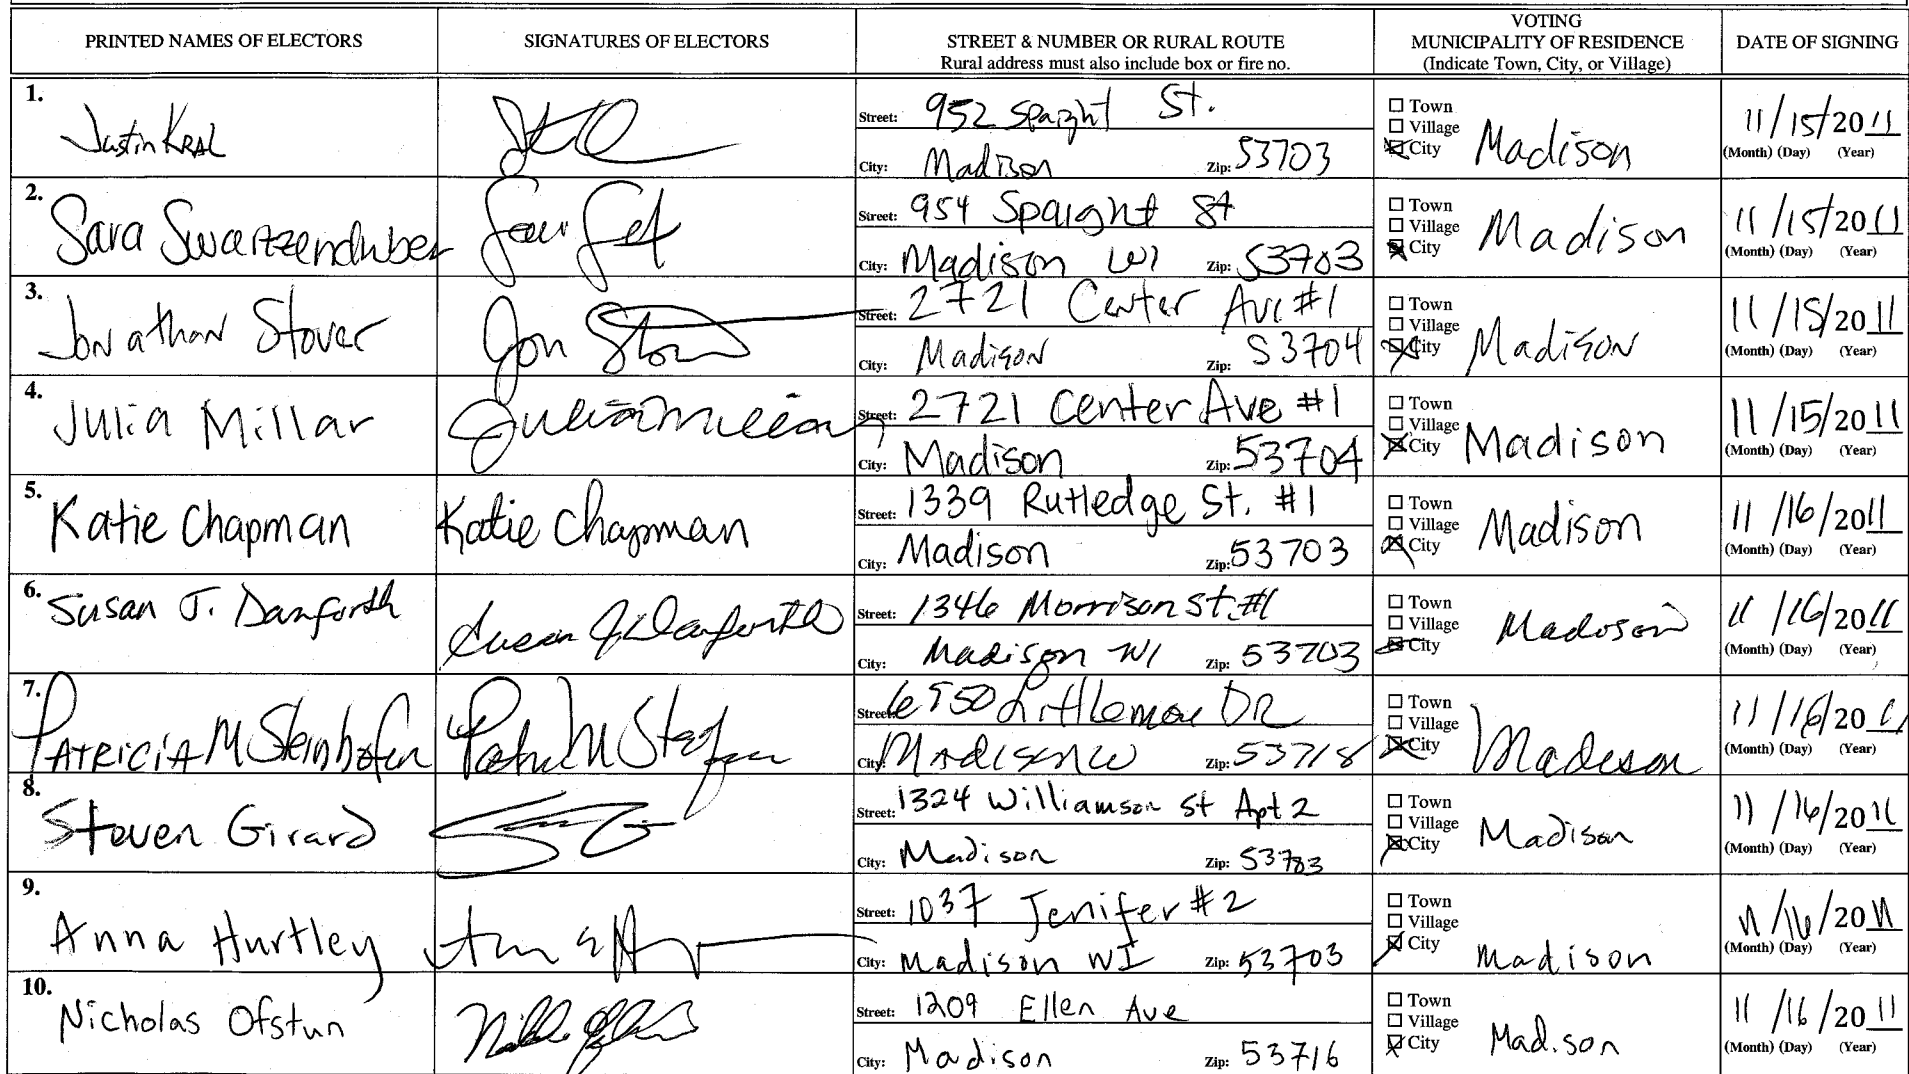 PRINTED NAMES OF ELECTORS
SIGNATURES OF ELECTORS
STREET & NUMBER OR RURAL ROUTE
Rural address must also include box or fire no.
VOTING
MUNICIPALITY OF RESIDENCE
(Indicate Town, City, or Village)
DATE OF SIGNING
1.
Justin KRAL
Street: 952 Spaight St.
City: Madison Zip: 53703
Town
Village
City
Madison
11/15/2011
(Month) (Day) (Year)
2.
Sara Swartzendruber
Street: 954 Spaight St
City: Madison WI Zip: 53703
Town
Village
City
Madison
11/15/2011
(Month) (Day) (Year)
3.
Jonathan Stover
Jon
Street: 2721 Center Ave #1
City: Madison Zip: 53704
Town
Village
City
Madison
11/15/2011
(Month) (Day) (Year)
4.
Julia Millar
Julia Millar
Street: 2721 Center Ave #1
City: Madison Zip: 53704
Town
Village
City
Madison
11/15/2011
(Month) (Day) (Year)
5.
Katie Chapman
Katie Chapman
Street: 1339 Rutledge St. #1
City: Madison Zip: 53703
Town
Village
City
Madison
11/16/2011
(Month) (Day) (Year)
6.
Susan J. Danforth
Susan J Danforth
Street: 1346 Morrison St. #1
City: Madison WI Zip: 53703
Town
Village
City
Madison
11/16/2011
(Month) (Day) (Year)
7.
PATRICIA M Steinhofen
Street: 6950 Littlemore DR
City: MADISON W Zip: 53718
Town
Village
City
Madison
11/16/2011
(Month) (Day) (Year)
8.
Steven Girard
Street: 1324 Williamson St Apt 2
City: Madison Zip: 53703
Town
Village
City
Madison
11/16/2011
(Month) (Day) (Year)
9.
Anna Hurtley
Street: 1037 Jenifer #2
City: Madison WI Zip: 53703
Town
Village
City
Madison
11/16/2011
(Month) (Day) (Year)
10.
Nicholas Ofstun
Street: 1209 Ellen Ave
City: Madison Zip: 53716
Town
Village
City
Madison
11/16/2011
(Month) (Day) (Year)